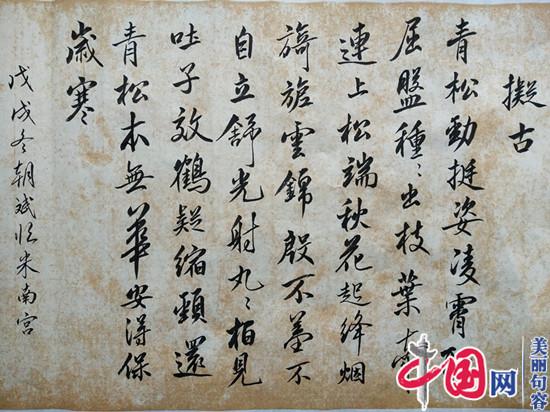 擬古
青松勁挺姿凌霄
屈盤種〻出枝葉牽
連上松端秋花起絳烟
旖旎雲錦殷不羞不
自立舒光射丸〻柏見
吐子效鶴疑縮頸還
青松本無華安得保
歲寒
戊戌冬朝斌临米南宮
中国网
美丽句容